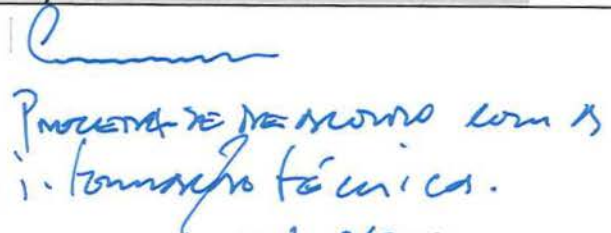 Proceda-se de acordo com a
informação técnica.